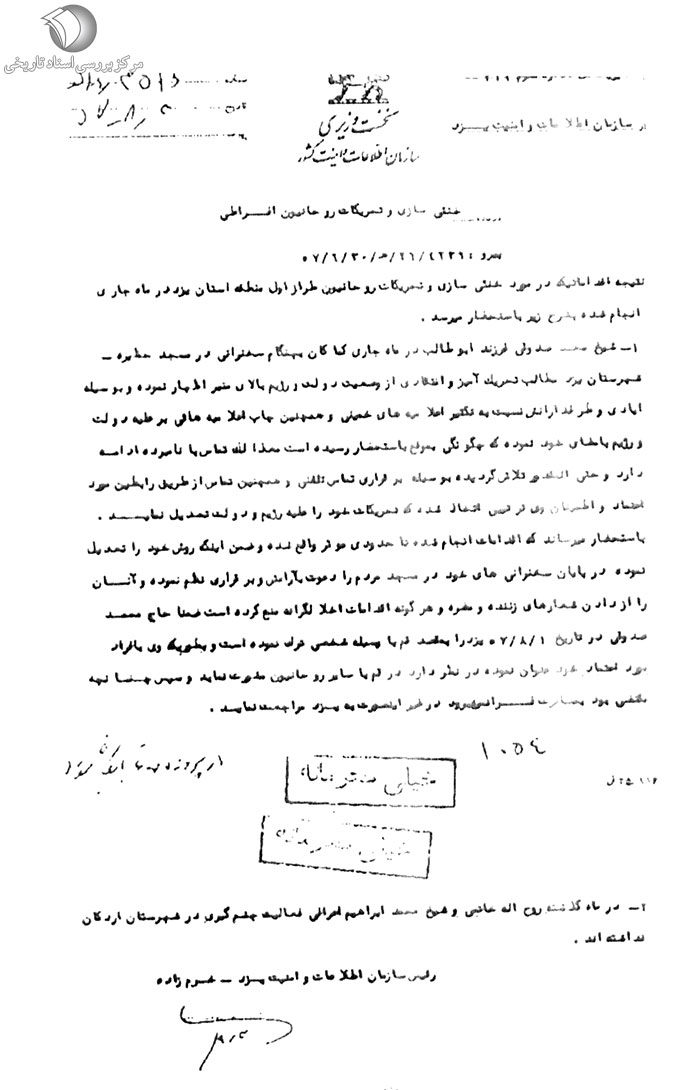 مرکز بررسی اسناد تاریخی
شماره
تاریخ
نخست وزیری
سازمان اطلاعات و امنیت کشور
از سازمان اطلاعات و امنیت یزد
خنثی سازی و تحریکات روحانیون افراطی
پیرو : ۲۶/۴۲۳۶/ه‍ - ۵۷/۶/۳۰
نتیجه اقداماتیکه در مورد خنثی سازی و تحریکات روحانیون طراز اول منطقه استان یزد در ماه جاری
انجام شده بشرح زیر باستحضار میرسد .
۱- شیخ محمد صدوقی فرزند ابوطالب در ماه جاری کماکان بهنگام سخنرانی در مسجد حظیره -
شهرستان یزد مطالب تحریک آمیز و انتقادی از وضعیت دولت و رژیم بالای منبر اظهار نموده و بوسیله
ایادی و طرفدارانش نسبت به تکثیر اعلامیه های خمینی و همچنین چاپ اعلامیه هائی بر علیه دولت
و رژیم بامضای خود نموده که چگونگی بموقع باستحضار رسیده است معذالک تماس با نامبرده ادامه
دارد و حتی المقدور تلاش گردیده بوسیله بر قراری تماس تلفنی و همچنین تماس از طریق رابطین مورد
اعتماد و اطمینان وی ترتیبی اتخاذ شده که تحریکات خود را علیه رژیم و دولت تعدیل نمایند .
باستحضار میرساند که اقدامات انجام شده تا حدودی موثر واقع شده و ضمن اینکه روش خود را تعدیل
نموده در پایان سخنرانی های خود در مسجد مردم را دعوت بآرامش و بر قراری نظم نموده و آنسان
را از دادن شعارهای زننده و مضره و هر گونه اقدامات اخلالگرانه منع کرده است ضمنا حاج محمد
صدوقی در تاریخ ۵۷/۸/۱ یزد را بمقصد قم با وسیله شخصی ترک نموده است و بطوریکه وی بافراد
مورد اعتماد خود عنوان نموده در نظر دارد در قم با سایر روحانیون مشورت نماید و سپس چنانچه
مقتضی بود بمسافرت فرانسه میرود در غیر اینصورت به یزد مراجعت نماید .
۱۰۵۴
خیلی محرمانه
خیلی محرمانه
۲- در ماه گذشته روح اله خاتمی و شیخ محمد ابراهیم اعرافی فعالیت چشم گیری در شهرستان اردکان
نداشته اند .
رئیس سازمان اطلاعات و امنیت یزد - خرم زاده